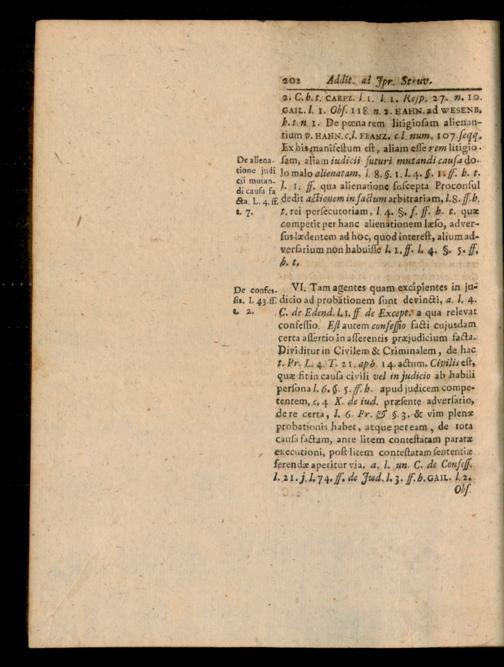 202 Addit. ad Jpr. Struv.
2. C. h. t. CARPZ. l. 1. l. 1. Resp. 27. n. 10.
GAIL. l. 1. Obs. 118. n. 2. HAHN. ad WESENB.
h. t. n. 1. De pœna rem litigiosam alienan-
tium v. HAHN. c. l. FRANZ. c. l. num. 107. seqq.
Ex his manifestum est, aliam esse rem litigio-
De aliena-
tione judi
cii mutan-
di causa fa
cta. L. 4. ff.
t. 7.
sam, aliam iudicii futuri mutandi causa do-
lo malo alienatam, l. 8. §. 1. l. 4. §. 1. ff. h. t.
l. 1. ff. qua alienatione suscepta Proconsul
dedit actionem in factum arbitrariam, l. 8. ff. h.
t. rei persecutoriam, l. 4. §. 5. ff. h. t. quæ
competit per hanc alienationem læso, adver-
sus lædentem ad hoc, quod interest, alium ad-
versarium non habuisse l. 1. ff. l. 4. §. 5. ff.
h. t.
De confes-
sis. l. 43. ff.
t. 2.
VI. Tam agentes quam excipientes in ju-
dicio ad probationem sunt devincti, a. l. 4.
C. de Edend. l. 1. ff. de Except. a qua relevat
confessio. Est autem confessio facti cujusdam
certa assertio in asserentis præjudicium facta.
Dividitur in Civilem & Criminalem, de hac
t. Pr. L. 4. T. 21. aph. 14. actum. Civilis est,
quæ fit in causa civili vel in judicio ab habili
persona l. 6. §. 5. ff. h. apud judicem compe-
tentem, c. 4. X. de iud. præsente adversario,
de re certa, l. 6. Pr. & §. 3. & vim plenæ
probationis habet, atque per eam, de tota
causa factam, ante litem contestatam paratæ
executioni, post litem contestatam sententiæ
ferendæ aperitur via. a. l. un. C. de Confess.
l. 21. j. l. 74. ff. de Jud. l. 3. ff. h. GAIL. l. 2.
Obs.